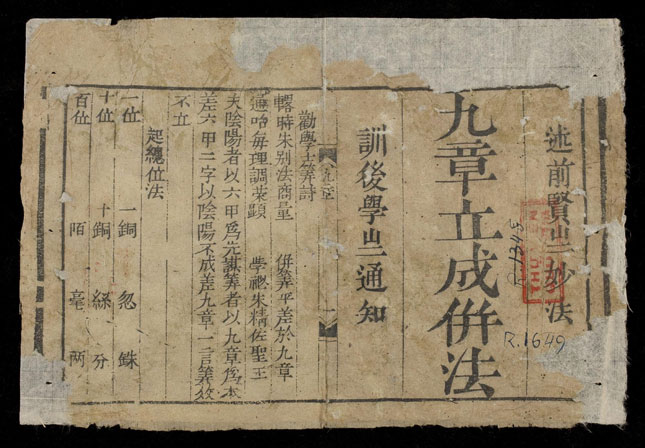 述前賢㞢妙法
九章立成併法
訓後學㞢通知
勸學士筭詩
時朱别法商量 併筭平差於九章
通咍每理調荣顕 學 朱精佐聖王
夫陰陽者以六甲爲先 筭者以九章爲本
差六甲二字以陰陽不成差九章一言筭效
不立
起總位法
一位 一銅 忽 銖
十位 十銅 絲 分
百位 陌 毫 両
R.1649